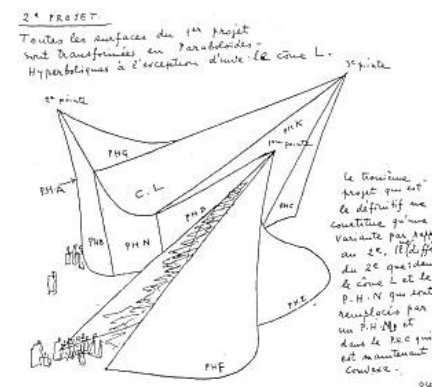 2e PROJET.
Toutes les surfaces du 1er projet
sont transformées en Paraboloïdes-
Hyperboliques à l'exception d'une le cône L.
3e pointe
2e pointe
PH K
1ère pointe
PHG
PH A
C.L
PH D
PHC
PHB
PHN
PHE
PHF
Le troisième
projet qui est
le définitif ne
constitue qu'une
variante par rapp
au 2e. Il diffè
du 2e que dan
le cône L et le
P.H.N qui sont
remplacés par
un P.H.M, et
dans le
qui
est maintenant
convexe.